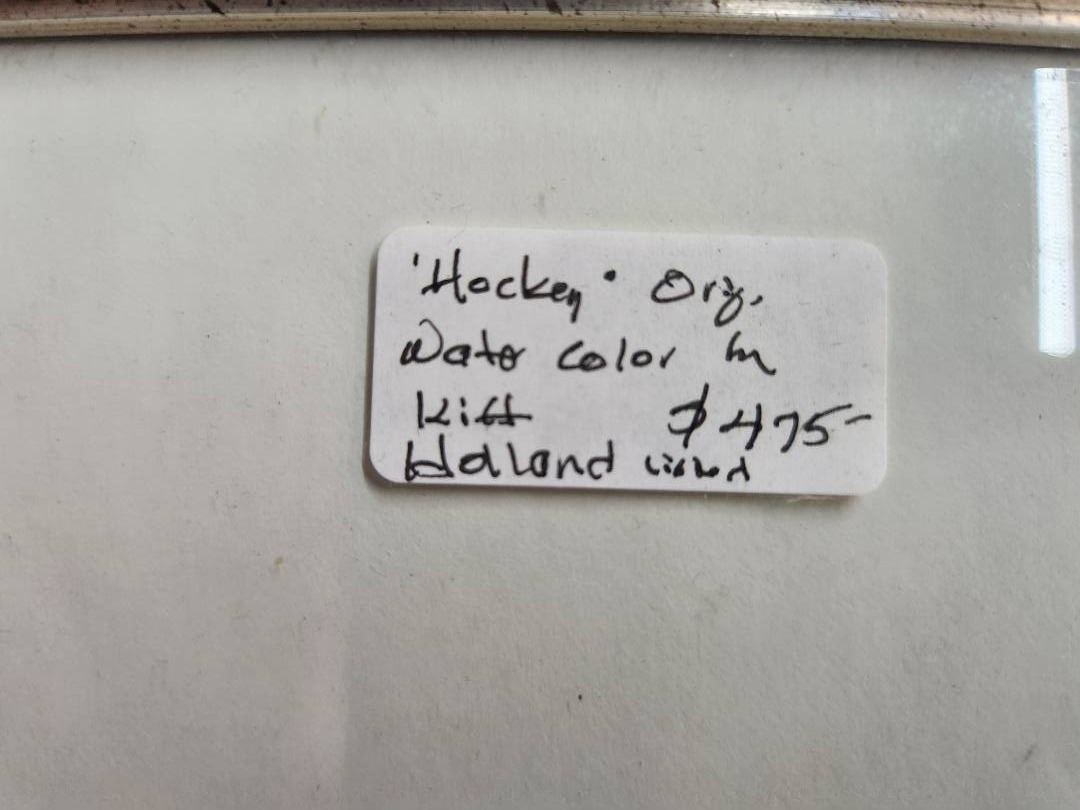 'Hockey" Orig.
Water color by
Kiff $475-
Holland Listed